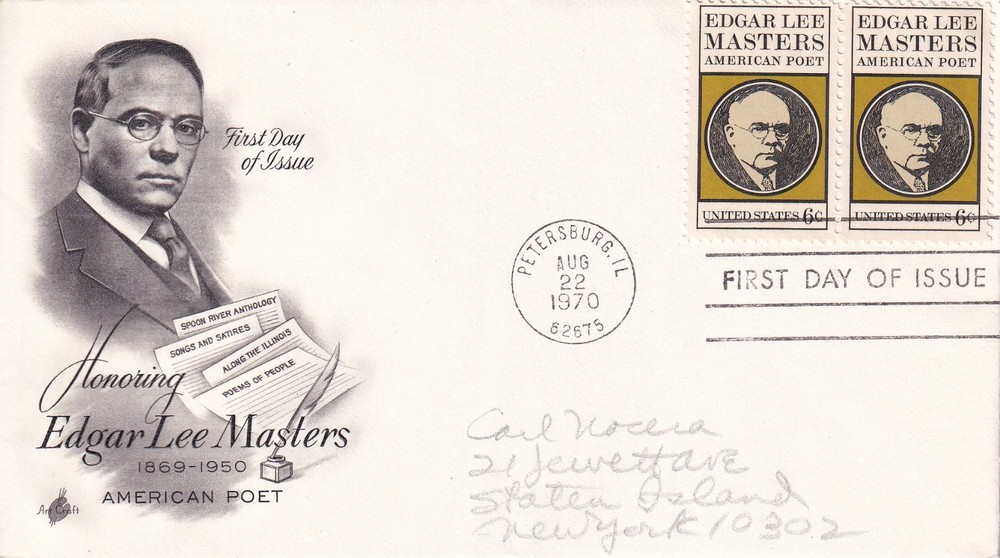 First Day
of Issue
SPOON RIVER ANTHOLOGY
SONGS AND SATIRES
ALONG THE ILLINOIS
POEMS OF PEOPLE
Honoring
Edgar Lee Masters
1869-1950
AMERICAN POET
Art Craft
EDGAR LEE
MASTERS
AMERICAN POET
UNITED STATES 6¢
EDGAR LEE
MASTERS
AMERICAN POET
UNITED STATES 6¢
PETERSBURG, IL
AUG
22
1970
62675
FIRST DAY OF ISSUE
Carl Nocera
21 Jewett Ave
Staten Island
New York 10302